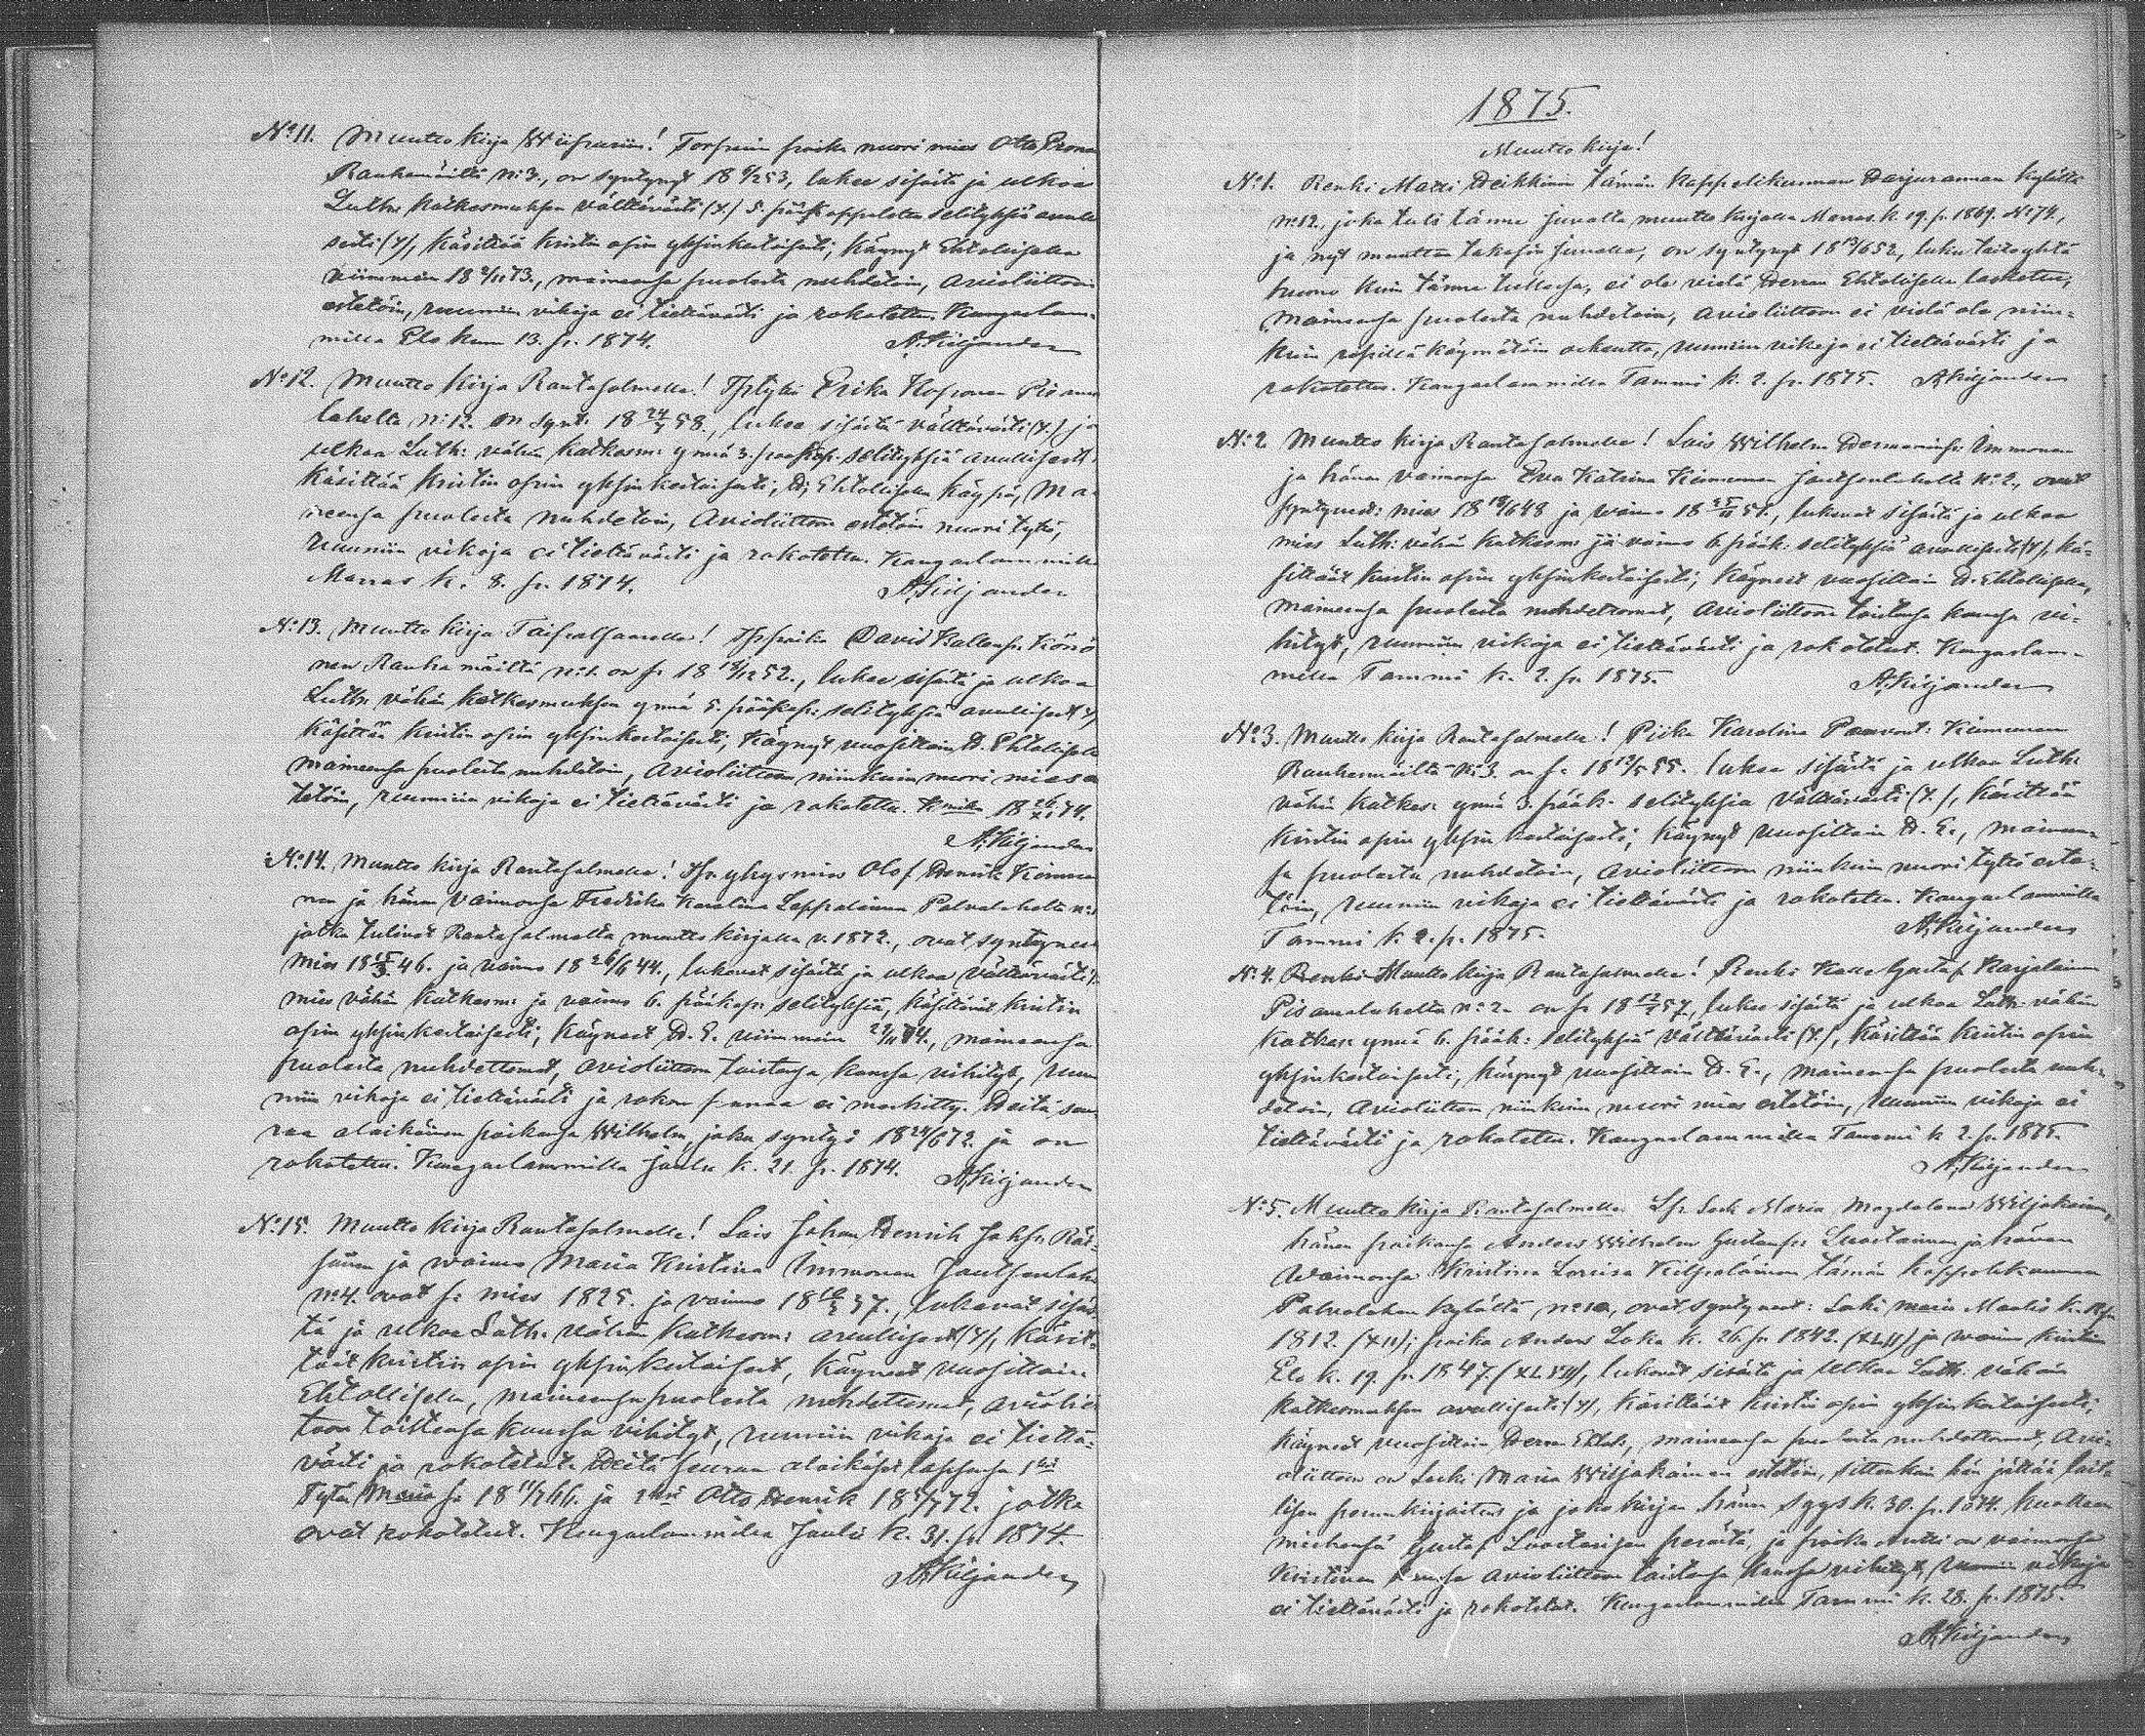 No 11. Muutto kirja Wiipuriin! Torparin poika nuori mies Otto
Rauhamäiltä N:3., on syntynyt 18 6/2 53, lukee sisältä ja ulkoa
Luth: katkesmuksen välttävästi (y.) 5. pääkappaletten selityksiä avulli
sesti (y), käsittää kristin opin yksinkertaisesti, käynyt Ehtollisella
viimmein 18 2/11 73., maineensa puolesta nuhdetoin, avioliittoon
estetöin, ruumiin vikoja ei tiettävästi ja rokotettu. Kangaslam-
milla Elo kuu 13. p. 1874. A. Kiljander
No 12. Muutto kirja Rantasalmelle! Itstytär Erika Kosonen Pisama
lahelta N:12. on synt. 18 24/ 58., lukee sisältä välttävästi (y.) ja
ulkoa Luth: vähän katkesm: ynnä 3. pääkap. selityksiä avullisesti,
käsittää kristin opin yksinkertaisesti, H. Ehtollisella käypä, Ma
neensa puolesta nuhdetoin, Avioliittoon estetöin nuori tyttö,
ruumiin vikoja ei tiettävästi ja rokotettu. Kangaslammilla
Marras k. 8. p. 1874. A. Kiljander
No 13. Muutto kirja Taipalsaarelle! David Kallenp. Könö
nen Rauha mäiltä N:1. on s. 18 18/12 52., lukee sisältä ja ulkoa
Luth: vähän katkesmuksen ynnä 5. pääkap: selityksiä avullisesti (y)
käsittää kristin opin yksinkertaisesti, käynyt vuosittain H. Ehtollisella
maineensa puolesta nuhdetoin, avioliittoon niinkuin nuori mies es
tetöin, ruumiin vikoja ei tiettävästi ja rokotettu. K:milla 18 26/XI 74.
A. Kiljander
No 14. Muutto kirja Rantasalmelle! yhysmies Olof Henrik Kinnu
nen ja hänen vaimonsa Fredrika Karolina Lappalainen Palvalahelta N:
jotka tulivat Rantasalmelta muuttokirjalla v. 1872., ovat syntyneet
mies 18 15/3 46. ja vaimo 18 26/6 44., lukevat sisältä ja ulkoa välttävästi
mies vähän katkesm: ja vaimo 6. pääkap. selityksiä, käsittävät kristin
opin yksinkertaisesti, käyneet H. E. viimmein 29/11 74., maineensa
puolesta nuhdettomat, avioliittoon toistensa kanssa vihityt, ruu
miin vikoja ei tiettävästi ja rokon panoa ei merkitty. Heitä seu
raa alaikäinen poikansa Wilhelm, joka syntyi 18 24/6 72. ja on
rokotettu. Kangaslammilla Joulu k. 21. p. 1874. A. Kiljander
No 15. Muutto kirja Rantasalmelle! Lois Johan Henrik Joh:p. Räi-
sänen ja waimo Maria Kristina Immonen Joutsenlahe
N:4. ovat s. mies 1825. ja vaimo 18 10/3 37., lukevat sisäl
tä ja ulkoa Luth: vähän katkesm: avullisesti (y), käsit-
tävät kristin opin yksinkertaisest, käyneet vuosittain
Ehtollisella, maineensa puolesta nuhdettomat, avioliit
toon toistensa kanssa vihityt, ruumiin vikoja ei tiettä-
västi ja rokotetut. Heitä seuraa alaikäset lapsensa 1ksi
Tytär Maria s. 18 11/2 66. ja 2ksi Otto Henrik 18 5/7 72. jotka
ovat rokotetut. Kangaslammilla Joulu k. 31. p. 1874.
A. Kiljander
1875.
Muutto kirja!
No 1. Renki Matti Heikkinen tämän kappelikunnan Harjurannan kylästä
N:12., joka tuli tänne Juvalta muutto kirjalla Marras. k. 19. p. 1869. No 74.,
ja nyt muuttaa takasin Juvalle, on syntynyt 18 13/6 52, luku taito yhtä
huono kuin tänne tullessa, ei ole vielä Herran Ehtoliselle laskettu,
maineensa puolesta nuhdetoin, avioliittoon ei vielä ole niin-
kuin ripillä käymätöin oikeutta, ruumiin vikoja ei tiettävästi ja
rokotettu. Kangaslammilla Tammi k. 2. p. 1875. A. Kiljander
No 2 Muutto kirja Rantasalmelle! Lois Wilhelm Hermanninp. Immonen
ja hänen vaimonsa Eva Katrina Kinnunen Joutsenlahelta N:2., ovat
syntyneet: mies 18 18/6 48 ja vaimo 18 25/ 51., lukevat sisältä ja ulkoa
mies Luth: vähän katkesm: ja vaimo 6. pääk: selityksiä avullisesti (y), kä-
sittävät kristin opin yksinkertaisesti, käyneet vuosittain H. Ehtollisella,
maineensa puolesta nuhdettomat, avioliittoon toistensa kanssa vi-
hityt, ruumiin vikoja ei tiettävästi ja rokotetut. Kangaslam-
milla Tammi k. 2. p. 1875. A. Kiljander
No 3. Muutto kirja Rantasalmelle! Piika Karolina Paavont: Kinnunen
Rauhamäiltä N:3. on s. 18 12/5 55. lukee sisältä ja ulkoa Luth:
vähän katkes: ynnä 3. pääk. selityksiä välttävästi (y.), käsittää
kristin opin yksinkertaisesti, käynyt vuosittain H. E., maineen-
sa puolesta nuhdetoin, avioliittoon niinkuin nuori tyttö este-
töin, ruumiin vikoja ei tiettävästi ja rokotettu. Kangaslammilla
Tammi k. 2. p. 1875. A. Kiljander
No 4. Renki Muutto kirja Rantasalmelle! Renki Kalle Gustaf Karjalainen
Pisamalahelta N:2. on s. 18 12/ 57, lukee sisältä ja ulkoa Luth: vähän
katkes: ynnä 6. pääk: selityksiä välttävästi (y.), käsittää kristin opin
yksinkertaisesti, käynyt vuosittain H. E., maineensa puolesta nuh-
detoin, avioliittoon niinkuin nuori mies estetöin, ruumiin vikoja ei
tiettävästi ja rokotettu. Kangaslammilla Tammi k 2. p. 1875.
A. Kiljander
No 5. Muutto kirja Rantasalmelle Leski Maria Magdalena Wiljakainen,
hänen poikansa Anders Wilhelm Gustafsp. Luostarinen ja hänen
Waimonsa Kristina Lovisa Kilpeläinen tämän kappelikunnan
Palvalahen kylästä N:10, ovat syntyneet: Leski Maria Maalis k.
1812. (XII); poika Anders Loka k. 26. p. 1842. (XLII) ja waimo Kristin
Elo k. 19. p. 1847. (XLVII), lukevat sisältä ja ulkoa Luth. vähän
katkesmuksen avullisesti (y), käsittävät kristin opin yksinkertaisesti,
käyneet vuosittain Herran Ehtol:, maineensa puolesta nuhdettomat, Avi-
oliittoon on Leski Maria Wiljakainen estetöin, sittenkuin hän jättää lail-
lisen perunkirjoitus ja jako kirjan hänen Syys k. 30. p. 1874. kuolleen
miehensä Gustaf Luostarisen perästä, ja poika Antti on vaimonsa
Kristinan kanssa avioliittoon toistensa kanssa vihityt, Ruumiin vikoja
ei tiettävästi ja rokotetut. Kangaslammilla Tammi k. 28. p. 1875.
A. Kiljander